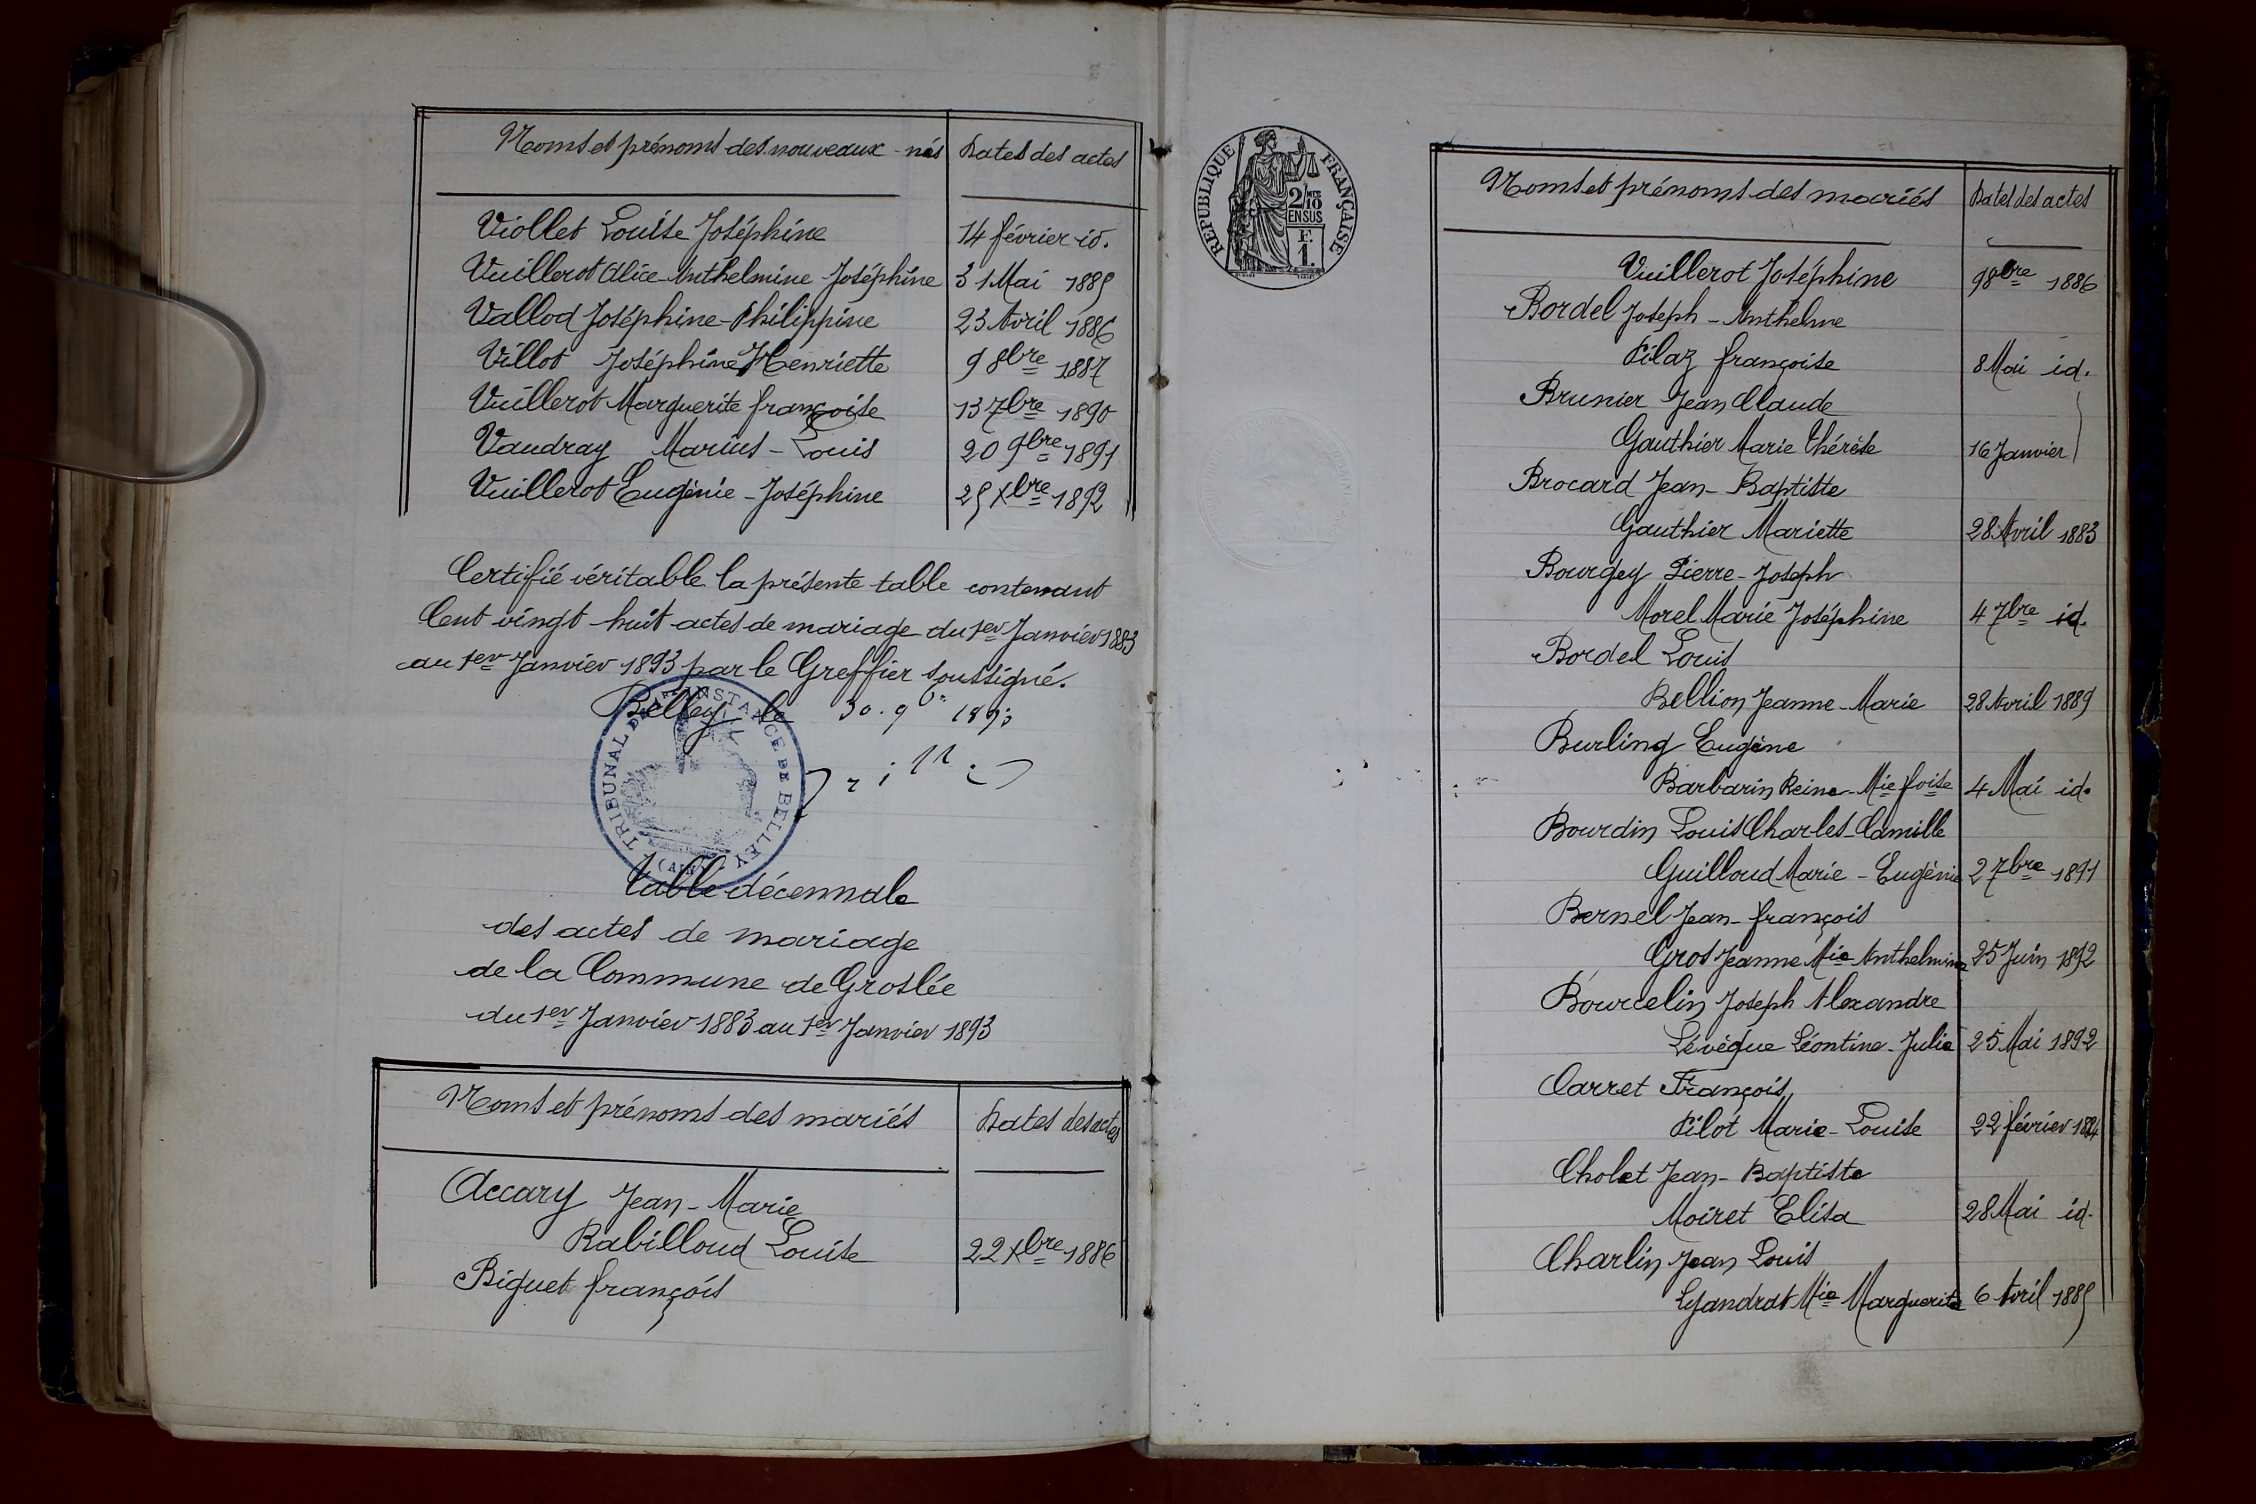 Noms et prénoms des nouveaux-nés Dates des actes
Viollet Louise Joséphine 14 février id.
Vuillerot Alice Anthelmine Joséphine 31 Mai 1885
Vallod Joséphine-Philippine 23 Avril 1886
Villot Joséphine Henriette 9 8bre 1887
Vuillerot Marguerite françoise 13 7bre 1890
Vaudray Marius-Louis 20 9bre 1891
Vuillerot Eugénie-Joséphine 25 Xbre 1892
Certifié véritable la présente table contenant
Cent vingt-huit actes de mariage du 1er Janvier 1883
au 1er Janvier 1893 par le Greffier soussigné.
Belley le 30. 9b 1893
TRIBUNAL DE 1ÈRE INSTANCE DE BELLEY
(AIN)
Table décennale
des actes de mariage
de la Commune de Groslée
du 1er Janvier 1883 au 1er Janvier 1893
Noms et prénoms des mariés Dates des actes
Accary Jean-Marie
Rabilloud Louise 22 Xbre 1886
Biguet françois
REPUBLIQUE FRANÇAISE
2/10
EN SUS
F.
1.
Noms et prénoms des mariés Dates des actes
Vuillerot Joséphine 9 8bre 1886
Bordel Joseph-Anthelme
Pilaz françoise 8 Mai id.
Brunier Jean Claude
Gauthier Marie Thérèse 16 Janvier
Brocard Jean-Baptiste
Gauthier Mariette 28 Avril 1883
Bourgey Pierre-Joseph
Morel Marie Joséphine 4 7bre id.
Bordel Louis
Bellion Jeanne-Marie 28 Avril 1889
Burling Eugène
Barbarin Reine-Mie foise 4 Mai id.
Bourdin Louis Charles-Camille
Guilloud Marie-Eugénie 2 7bre 1891
Bernel Jean-françois
Gros Jeanne Mie Anthelmine 25 Juin 1892
Bourcelin Joseph Alexandre
Lévêque Léontine-Julie 25 Mai 1892
Carret François
Pilot Marie-Louise 22 février 1884
Cholet Jean-Baptiste
Moiret Elisa 28 Mai id.
Charlin Jean Louis
Lyandrat Mie Marguerite 6 Avril 1885